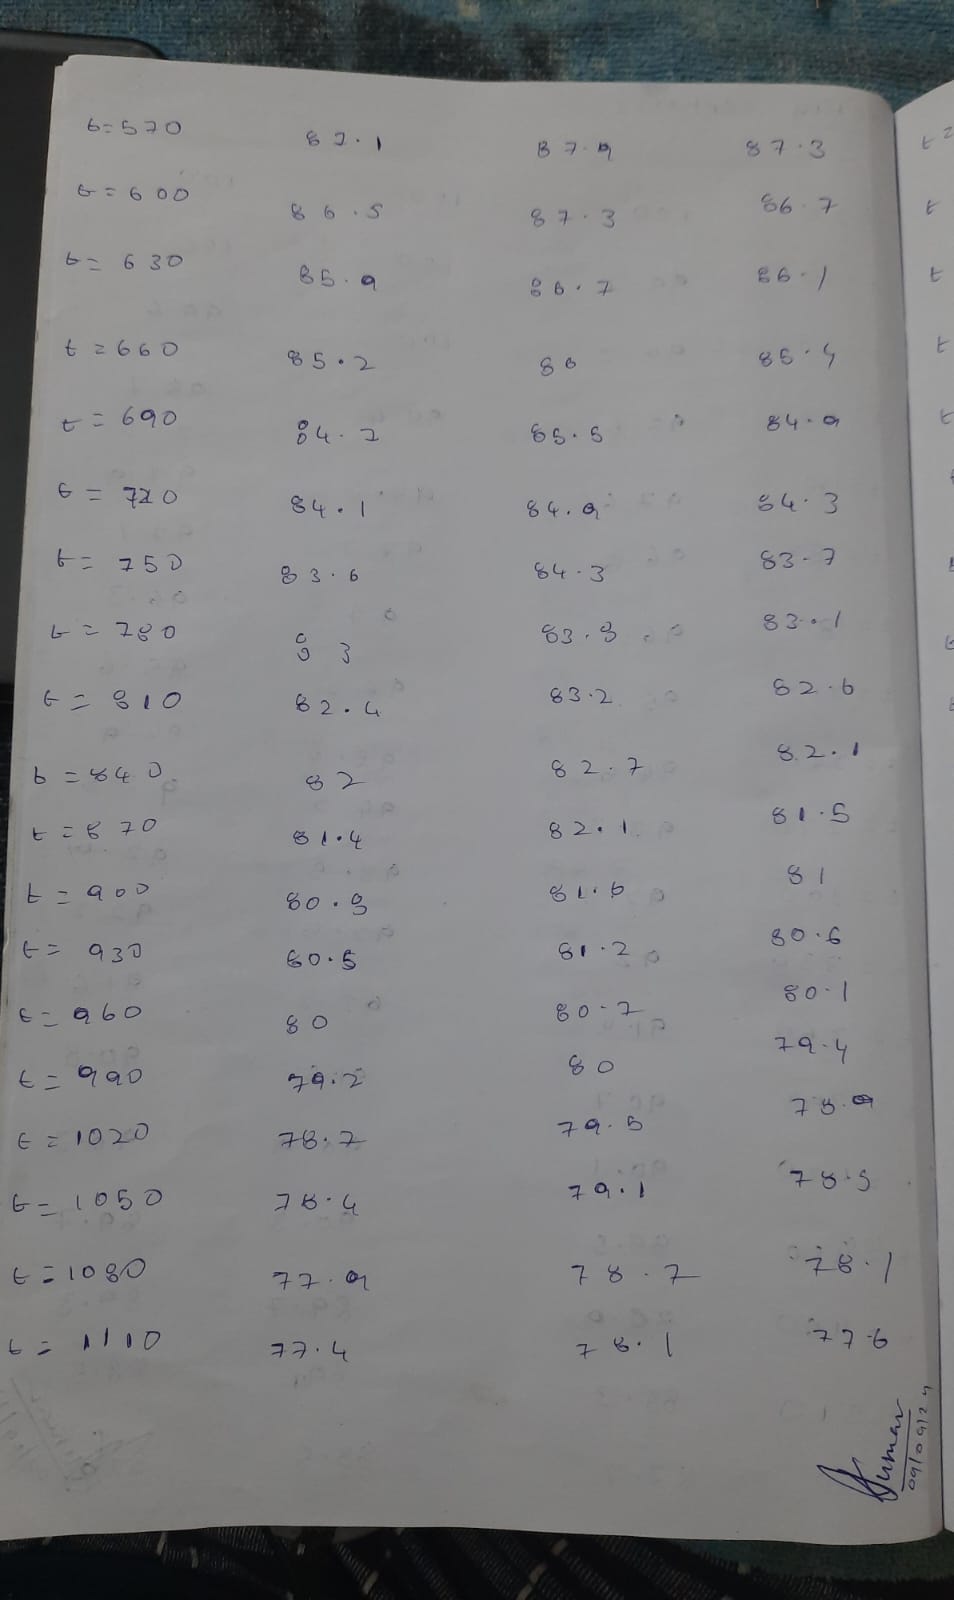 t=570 87.1 87.9 87.3
t=600 86.5 87.3 86.7
t=630 85.9 86.7 86.1
t=660 85.2 86 85.4
t=690 84.7 85.5 84.9
t=720 84.1 84.9 84.3
t=750 83.6 84.3 83.7
t=780 83 83.8 83.1
t=810 82.4 83.2 82.6
t=840 82 82.7 82.1
t=870 81.4 82.1 81.5
t=900 80.9 81.6 81
t=930 80.5 81.2 80.6
t=960 80 80.7 80.1
t=990 79.2 80 79.4
t=1020 78.7 79.5 78.9
t=1050 78.4 79.1 78.5
t=1080 77.9 78.7 78.1
t=1110 77.4 78.1 77.6
Kumar
09/09/24